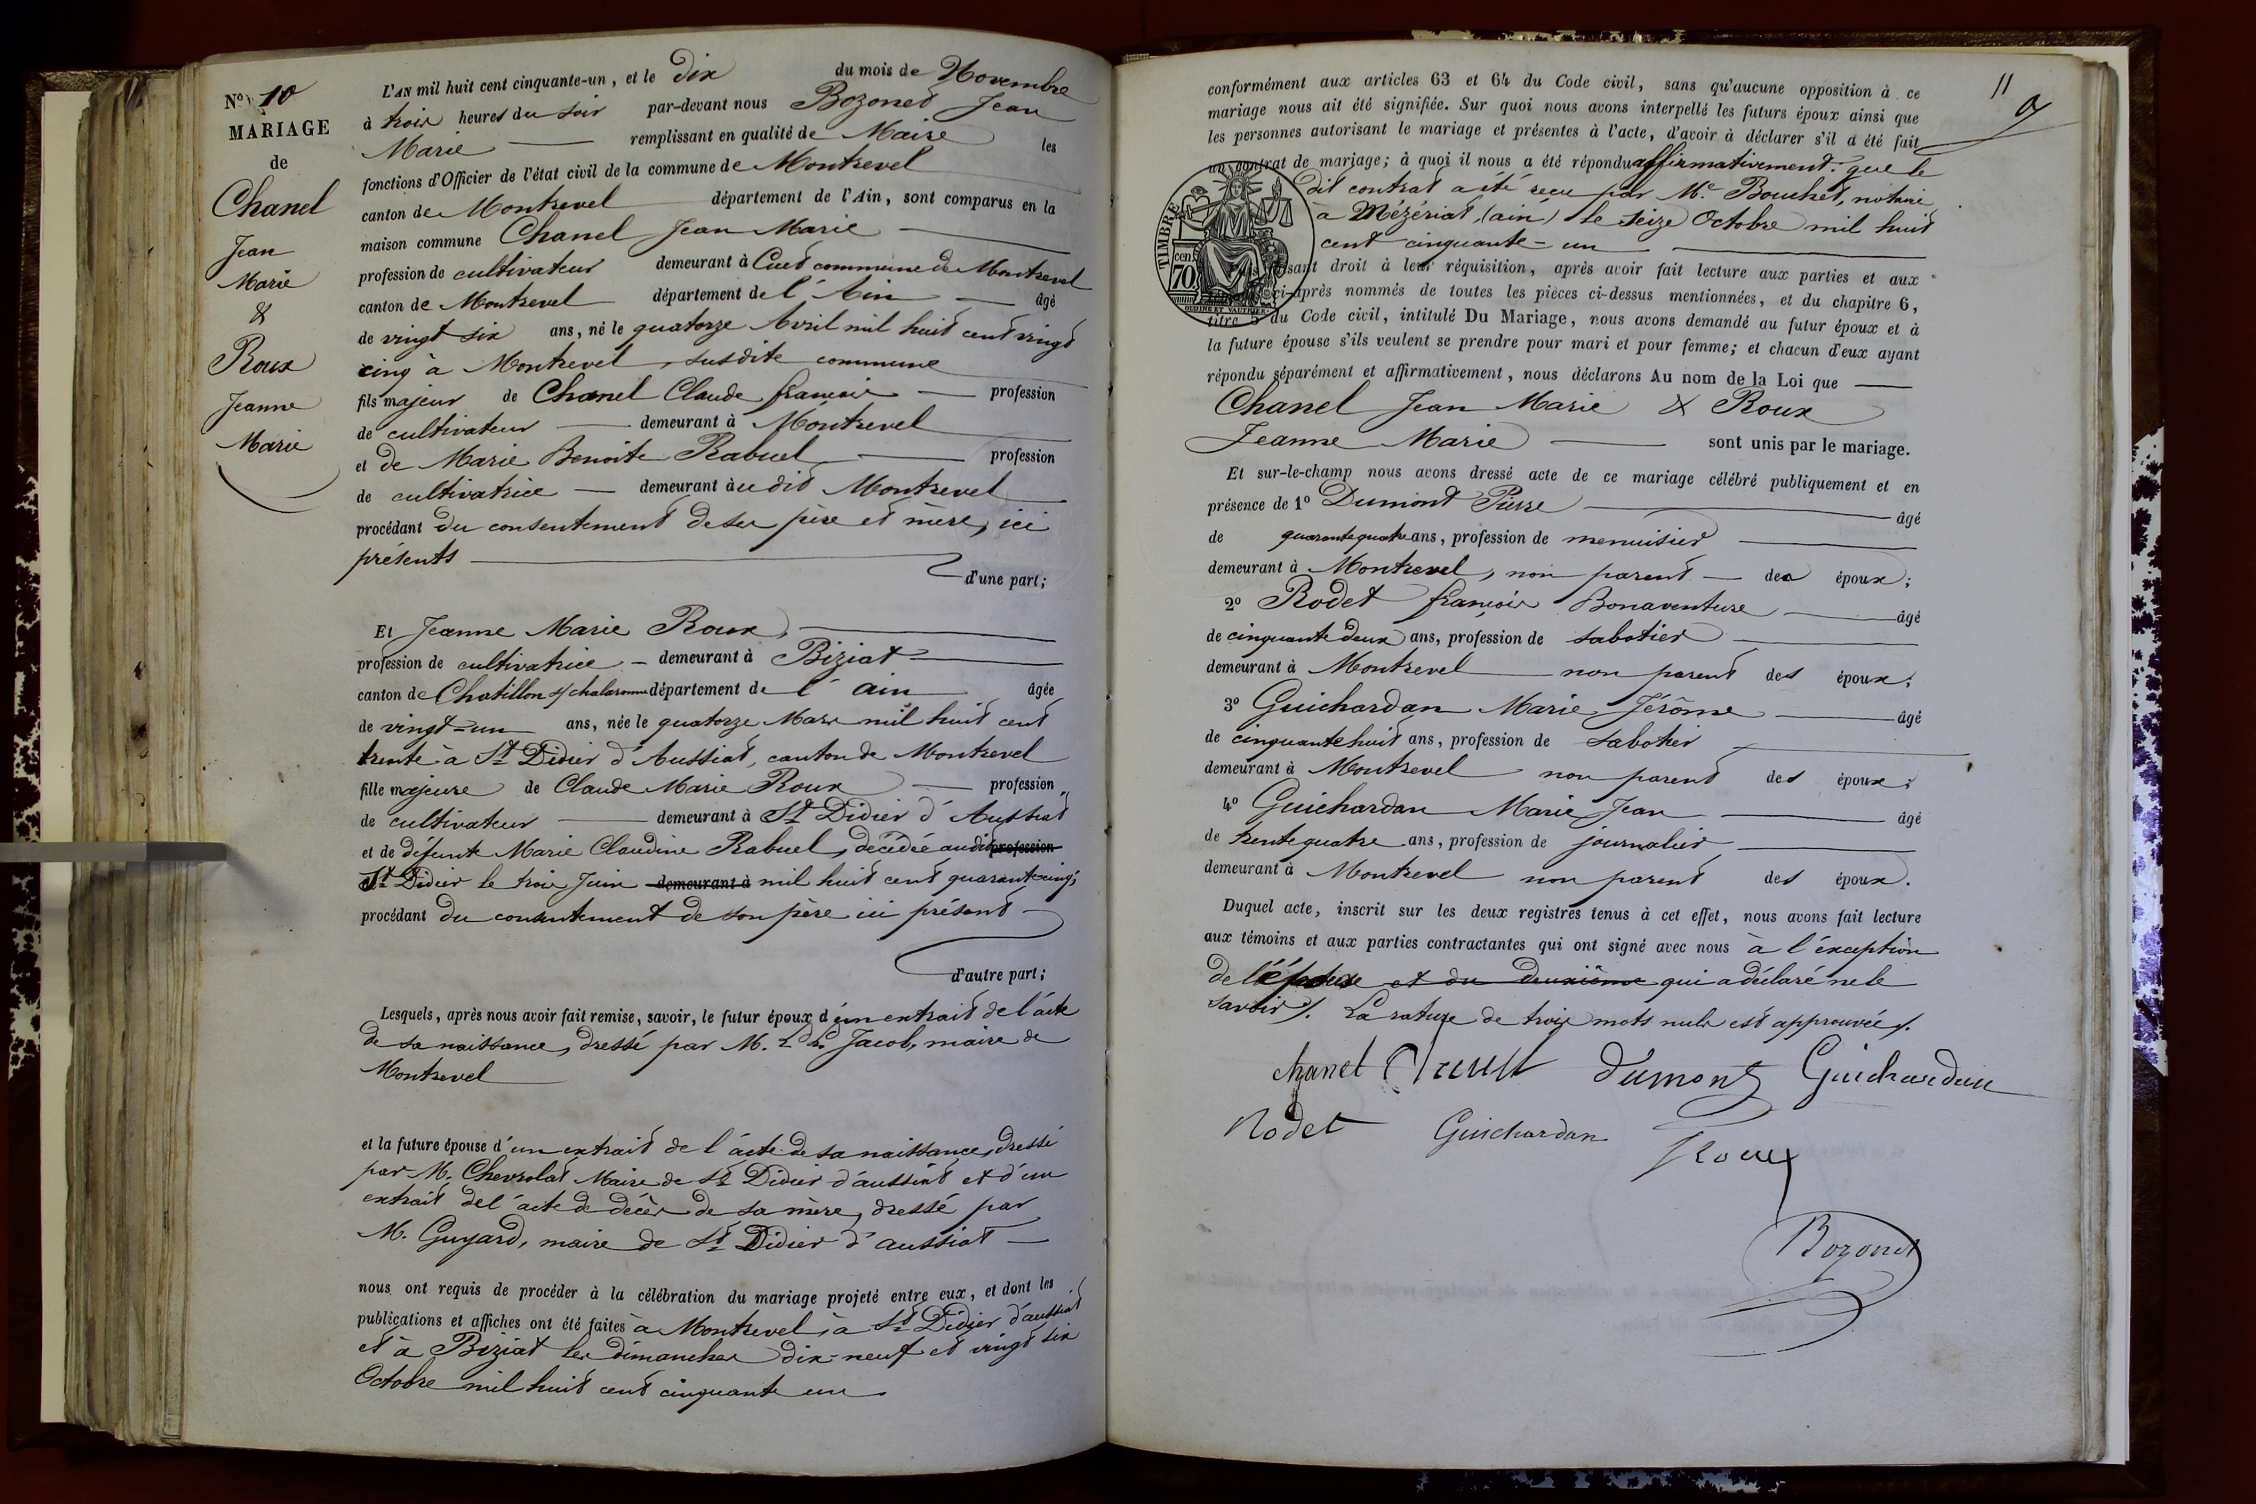 N° 10
MARIAGE
de
Chanel
Jean
Marie
&
Roux
Jeanne
Marie
L'AN mil huit cent cinquante-un, et le dix du mois de Novembre
à trois heures du soir par-devant nous Bozonet Jean
Marie remplissant en qualité de Maire les
fonctions d'Officier de l'état civil de la commune de Montrevel
canton de Montrevel département de l'Ain, sont comparus en la
maison commune Chanel Jean Marie
profession de cultivateur demeurant à Cuet commune de Montrevel
canton de Montrevel département de l'Ain âgé
de vingt six ans, né le quatorze Avril mil huit cent vingt
cinq à Montrevel, susdite commune
fils majeur de Chanel Claude françois profession
de cultivateur demeurant à Montrevel
et de Marie Benoite Rabuel profession
de cultivatrice demeurant à udit Montrevel
procédant du consentement de ses père et mère, ici
présents
d'une part;
Et Jeanne Marie Roux,
profession de cultivatrice demeurant à Biziat
canton de Chatillon s/ chalaronne département de l'ain âgée
de vingt=un ans, née le quatorze Mars mil huit cent
trente à St Didier d'Aussiat, canton de Montrevel
fille majeure de Claude Marie Roux profession
de cultivateur demeurant à St Didier d'Aussiat
et de défunte Marie Claudine Rabuel, décédée audit profession
St Didier le trois Juin demeurant à mil huit cent quarante cinq,
procédant du consentement de son père ici présent
d'autre part;
Lesquels, après nous avoir fait remise, savoir, le futur époux d'un extrait de l'acte
de sa naissance, dressé par M. Jacob, maire de
Montrevel
et la future épouse d'un extrait de l'acte de sa naissance, dressé
par M. Chevrolat Maire de St Didier d'aussiat et d'un
extrait de l'acte de décès de sa mère, dressé par
M. Guyard, maire de St Didier d'aussiat
nous ont requis de procéder à la célébration du mariage projeté entre eux, et dont les
publications et affiches ont été faites à Montrevel, à St Didier d'aussiat
et à Biziat les dimanches dix-neuf et vingt six
Octobre mil huit cent cinquante un
11
9
conformément aux articles 63 et 64 du Code civil, sans qu'aucune opposition à ce
mariage nous ait été signifiée. Sur quoi nous avons interpellé les futurs époux ainsi que
les personnes autorisant le mariage et présentes à l'acte, d'avoir à déclarer s'il a été fait
un contrat de mariage; à quoi il nous a été répondu affirmativement: que le
dit contrat a été reçu par Me Bouchet, notaire
à Mézériat, (ain) le seize Octobre mil huit
cent cinquante-un
TIMBRE
cen 70
OUDINE ET VAUTHIER
faisant droit à leur réquisition, après avoir fait lecture aux parties et aux
ci-après nommés de toutes les pièces ci-dessus mentionnées, et du chapitre 6,
titre 5 du Code civil, intitulé Du Mariage, nous avons demandé au futur époux et à
la future épouse s'ils veulent se prendre pour mari et pour femme; et chacun d'eux ayant
répondu séparément et affirmativement, nous déclarons Au nom de la Loi que
Chanel Jean Marie & Roux
Jeanne Marie sont unis par le mariage.
Et sur-le-champ nous avons dressé acte de ce mariage célébré publiquement et en
présence de 1° Dumont Pierre âgé
de quarante quatre ans, profession de menuisier
demeurant à Montrevel, non parent des époux;
2° Rodet françois Bonaventure âgé
de cinquante deux ans, profession de sabotier
demeurant à Montrevel non parent des époux;
3° Guichardan Marie Jérôme âgé
de cinquante huit ans, profession de sabotier
demeurant à Montrevel non parent des époux;
4° Guichardan Marie Jean âgé
de trente quatre ans, profession de journalier
demeurant à Montrevel non parent des époux.
Duquel acte, inscrit sur les deux registres tenus à cet effet, nous avons fait lecture
aux témoins et aux parties contractantes qui ont signé avec nous à l'éxception
de l'épouse et du deuxième qui a déclaré ne le
savoir /. La rature de trois mots nuls est approuvée /.
chanel Dumont Guichardan
Rodet Guichardan Roux
Bozonet